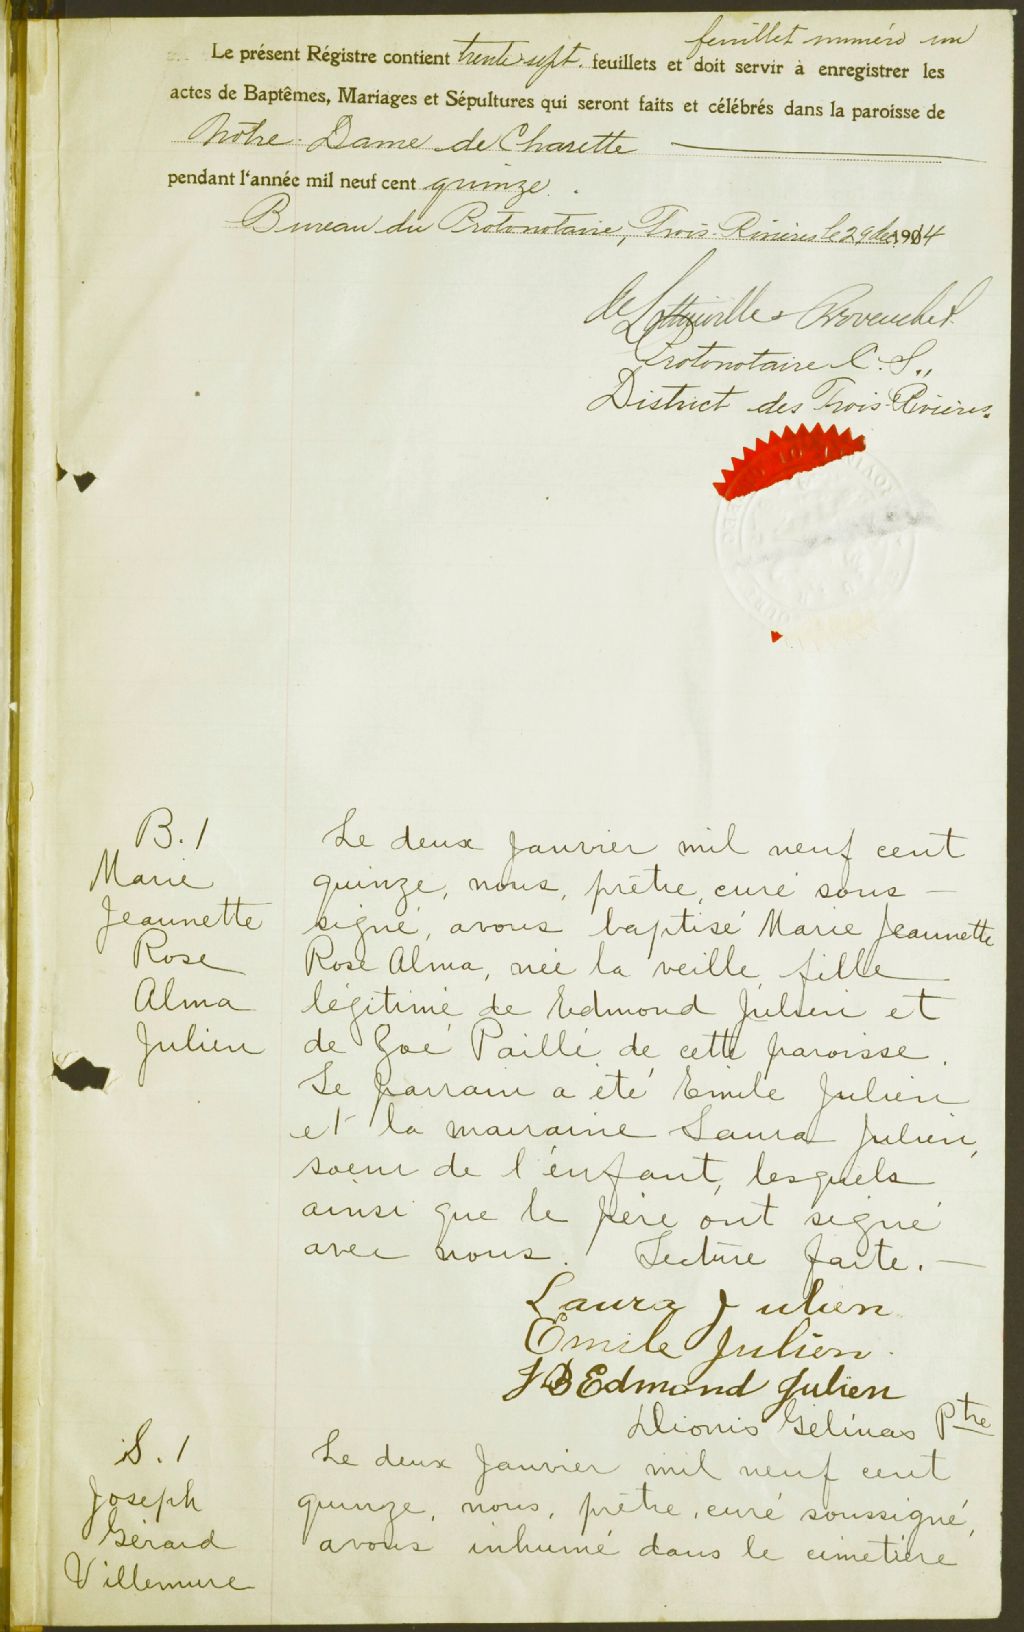 feuillet numéro un
Le présent Régistre contient trente-sept feuillets et doit servir à enregistrer les
actes de Baptêmes, Mariages et Sépultures qui seront faits et célébrés dans la paroisse de
Nôtre Dame de Charette
pendant l'année mil neuf cent quinze.
Bureau du Protonotaire, Trois-Rivières le 29 dec. 1914
de Lottinville & Provencher
Protonotaire C. S.,
District des Trois-Rivières.
B. 1
Marie
Jeannette
Rose
Alma
Julien
Le deux Janvier mil neuf cent
quinze, nous, prêtre, curé sous-
signé, avons baptisé Marie Jeannette
Rose Alma, née la veille, fille
légitime de Edmond Julien et
de Zoé Paillé de cette paroisse.
Le parrain a été Emile Julien
et la marraine Laura Julien,
soeur de l'enfant, lesquels
ainsi que le père ont signé
avec nous. Lecture faite.
Laura Julien
Emile Julien.
J B Edmond Julien
Dionis Gélinas Ptre
S. 1
Joseph
Gérard
Villemure
Le deux Janvier mil neuf cent
quinze, nous, prêtre, curé soussigné,
avons inhumé dans le cimetière